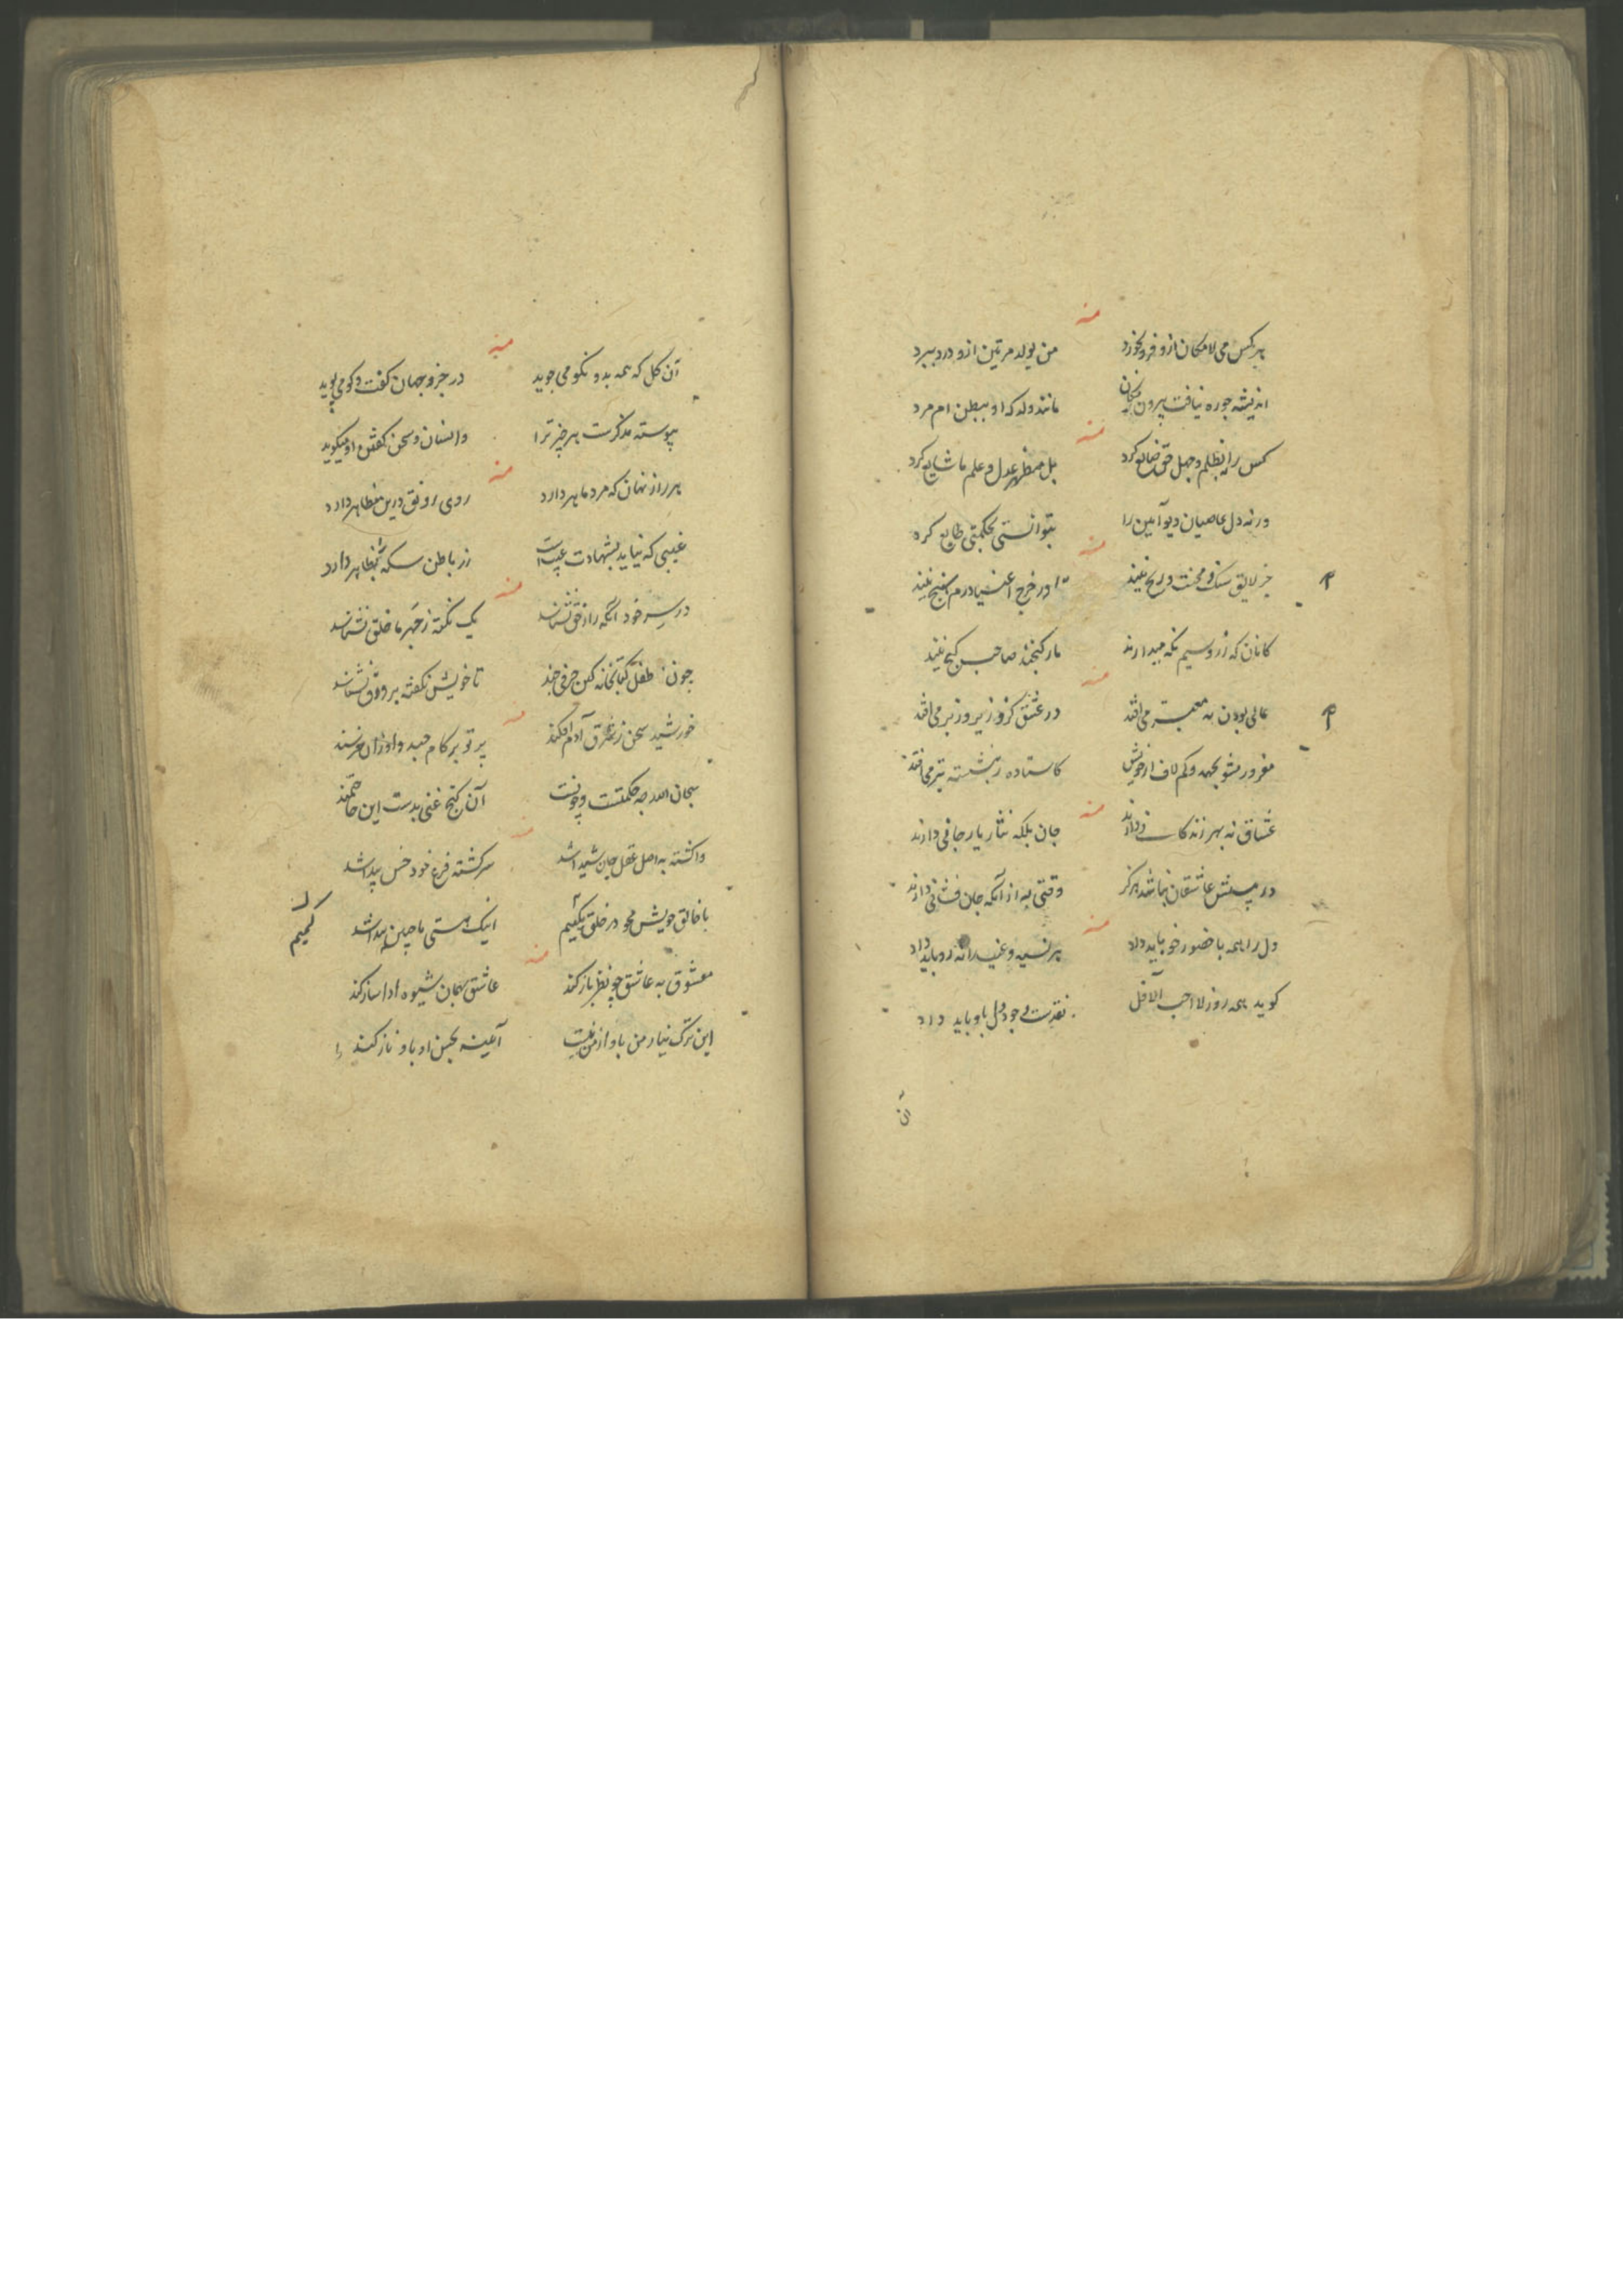 منه
هر کس می لامکان ازو فرو نخورد من یولد مرتین ازو درد ببرد
اندیشه چو ره نیافت بیرون مکان مانند ولد که او ببطن ام مرد
منه
کس را بظلم و جهل حق ضایع کرد بل مظهر عدل و علم ما شایع کرد
ورنه دل عاصیان دیو آیین را بتوانستی بحکمتی طایع کرد
منه
جز لایق سنک و محنت و رنج نیند در خرج
کانان که زر و سیم نکه میدارند مار کنجند صاحب کنج نیند
منه
عالی بودن به می افتد در عشق کزو زیر و زبر می افتد
مغرور مشو بجهد و کم لاف از خویش کاستاده ز بنشسته بتر می افتد
منه
عشاق نه بهر زندکانی دارند جان بلکه نثار یار جانی دارند
در پیش عاشقان نباشد هرکز وقتی به از آنکه جان فشانی دارند
منه
دل را همه با حضور خو باید داد بر نسیه و غیب را نه رو باید داد
کوید همه روز لا احب الآفل نقدست وجود دل باو باید داد
ان
منه
آن کل که همه بدو نکو می جوید در جزو جهان کفت و کو می پوید
پیوسته مذکرست هر چیز ترا وانسان و سخن کفتن او میکوید
منه
هر راز نهان که مرد ماهر دارد روی رونق درین مظاهر دارد
غیبی که نیاید بشهادت عیب است زر باطن سکه بظاهر دارد
منه
در سر خود آنکه راز حق نشناسد یک نکته ز جهر ما خلق نشناسد
چون طفل کتابخانه کس حرفی چند تا خویش نکفته بر ورق نشناسد
منه
خورشید سخن ز شرق آدم افکند پرتو بر کام
سبحان الله چه حکمتست و چونست آن کنج غنی بدست این حاجتمند
منه
واکشته به اصل عقل جان شیدا شد سرکشته فرع خود پیدا شد
با خالق خویش محو در خلق کمیم اینک هستی ما چنین پیدا شد
کمیم
منه
معشوق به عاشق چو نظر باز کند عاشق همان شیوه ادا ساز کند
این ترک نیاز من باو از من نیست آیینه بحسن او باو ناز کند